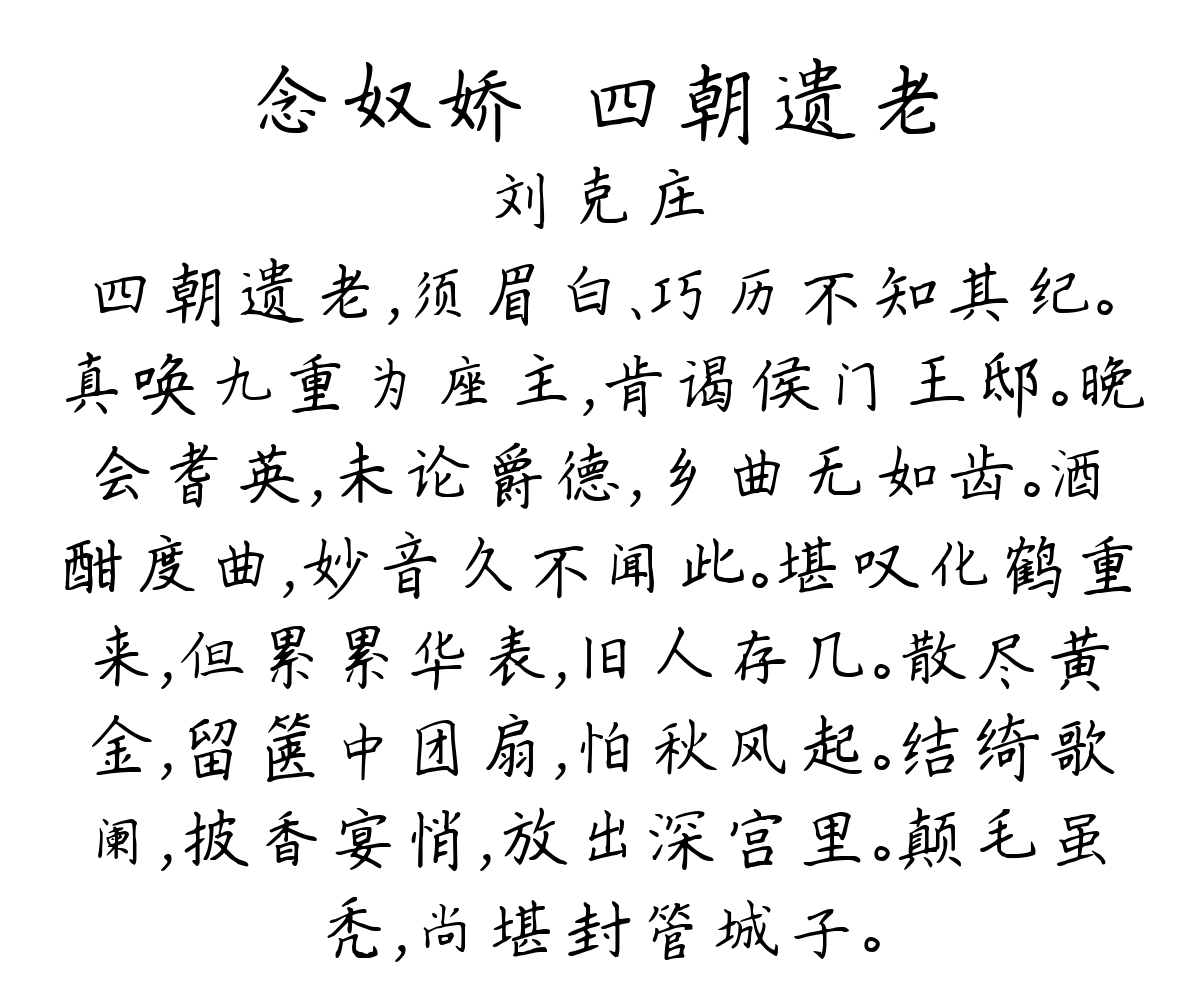 念奴娇 四朝遗老
刘克庄
四朝遗老,须眉白、巧历不知其纪。
真唤九重为座主,肯谒侯门王邸。晚
会耆英,未论爵德,乡曲无如齿。酒
酣度曲,妙音久不闻此。堪叹化鹤重
来,但累累华表,旧人存几。散尽黄
金,留箧中团扇,怕秋风起。结绮歌
阑,披香宴悄,放出深宫里。颠毛虽
秃,尚堪封管城子。